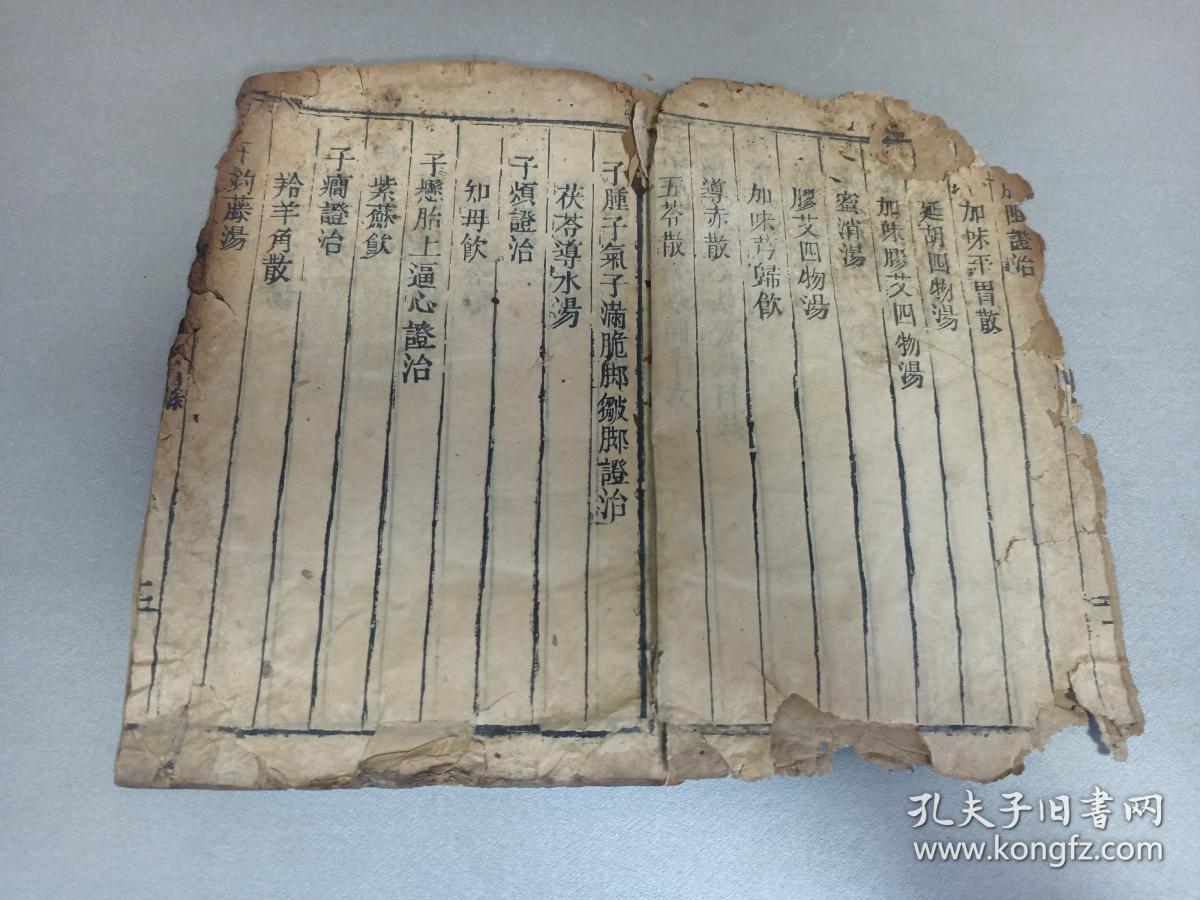 證治
加味平胃散
延胡四物湯
加味膠艾四物湯
蜜消湯
膠艾四物湯
加味芎歸飲
導赤散
五苓散
子腫子氣子滿脆脚皺脚證治
茯苓導水湯
子煩證治
知母飲
子懸胎上逼心證治
紫蘇飲
子癇證治
羚羊角散
鈎藤湯
孔夫子旧书网
www.kongfz.com